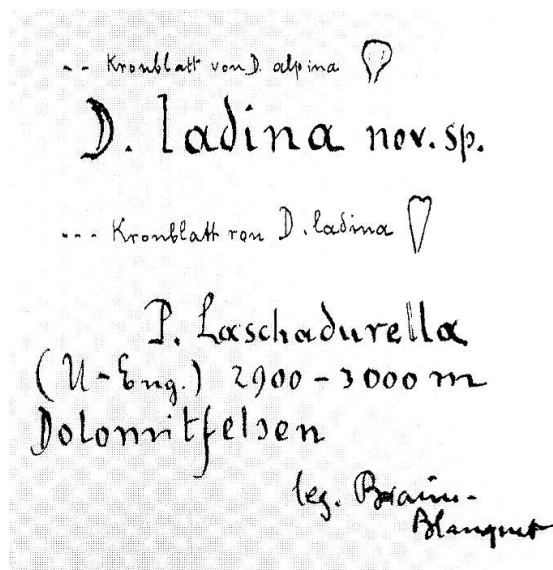 -- Kronblatt von D. alpina
D. ladina nov. sp.
--- Kronblatt von D. ladina
P. Laschadurella
(U-Eng.) 2900-3000 m
Dolomitfelsen
leg. Braun-
Blanquet